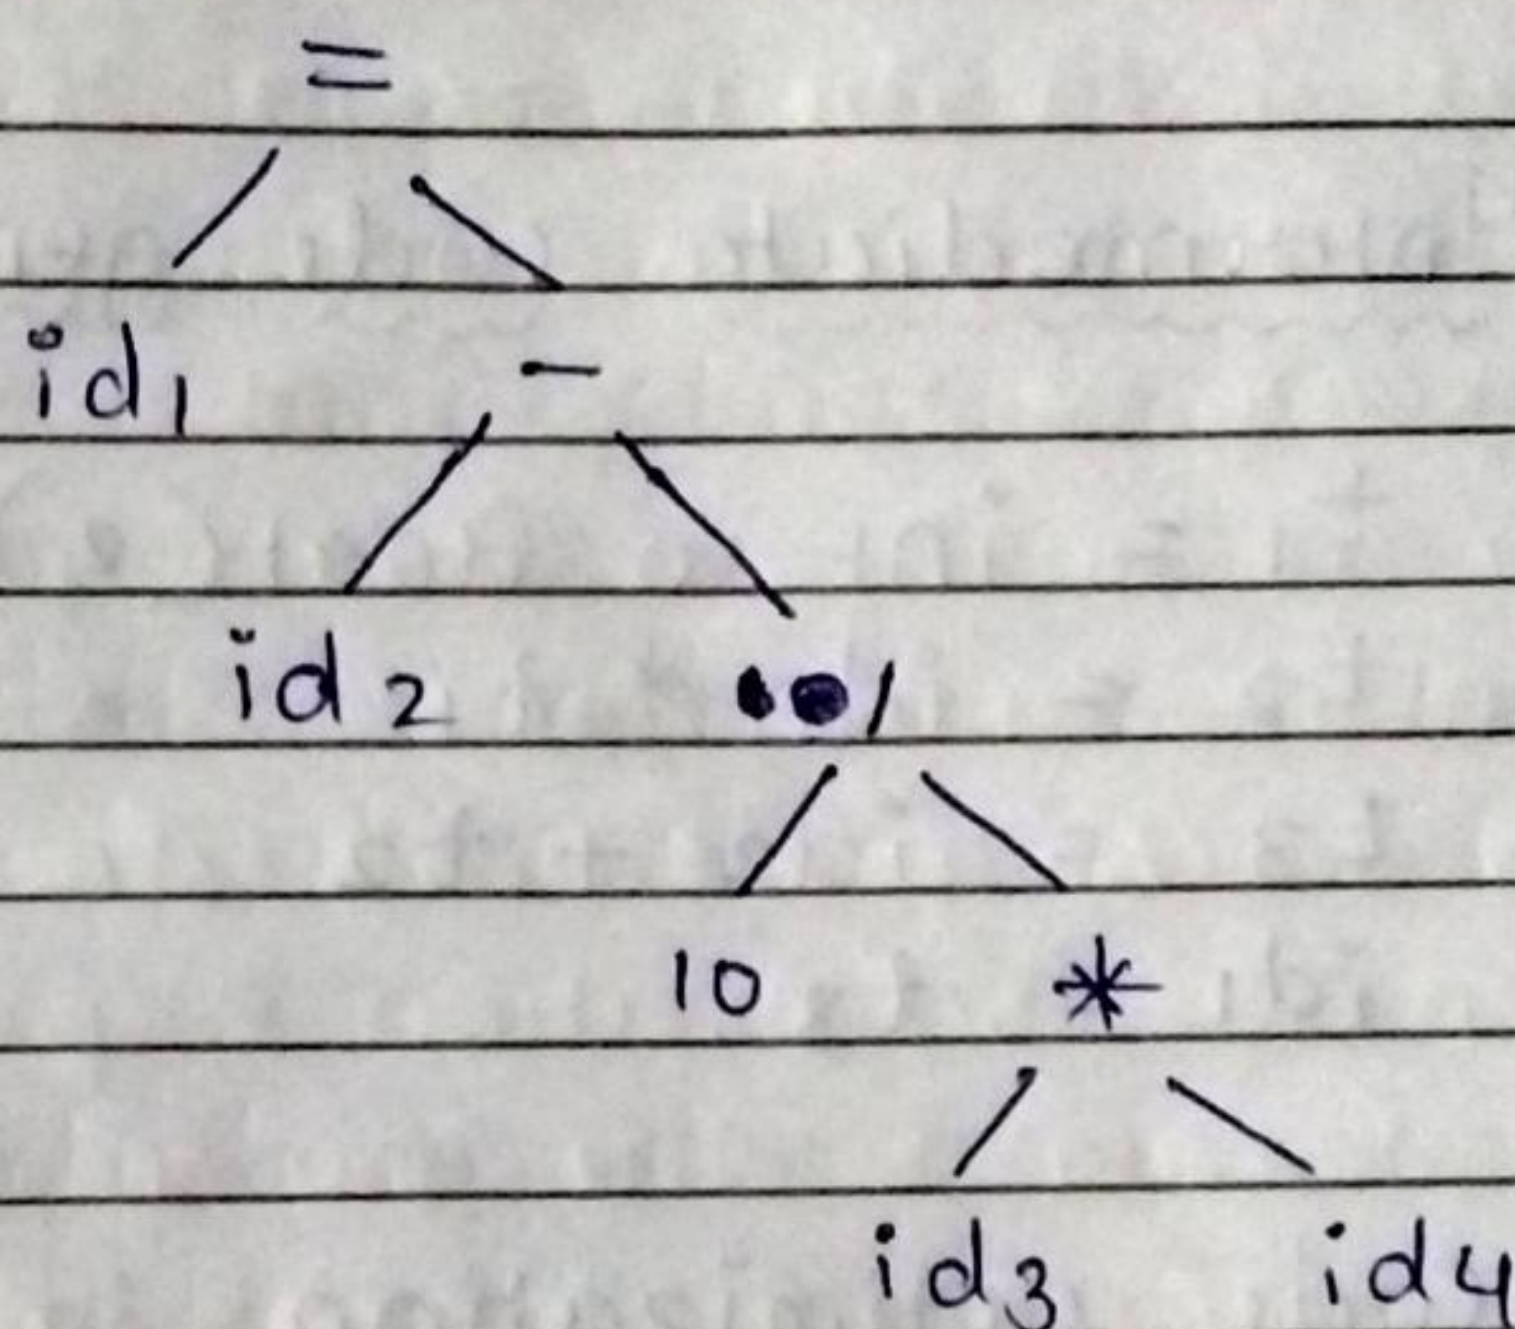 =
id1 -
id2 /
10 *
id3 id4